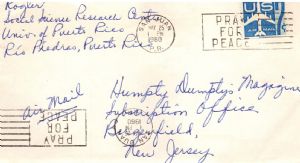 Kogler
Social Science Research Center
Univ. of Puerto Rico
Río Piedras, Puerto Rico
SAN JUAN
1960
P.R.
PRAY
FOR
PEACE
US
Air Mail
Humpty Dumpty's Magazine
Subscription Office
Bergenfield,
New Jersey
PRAY
FOR
PEACE
1960